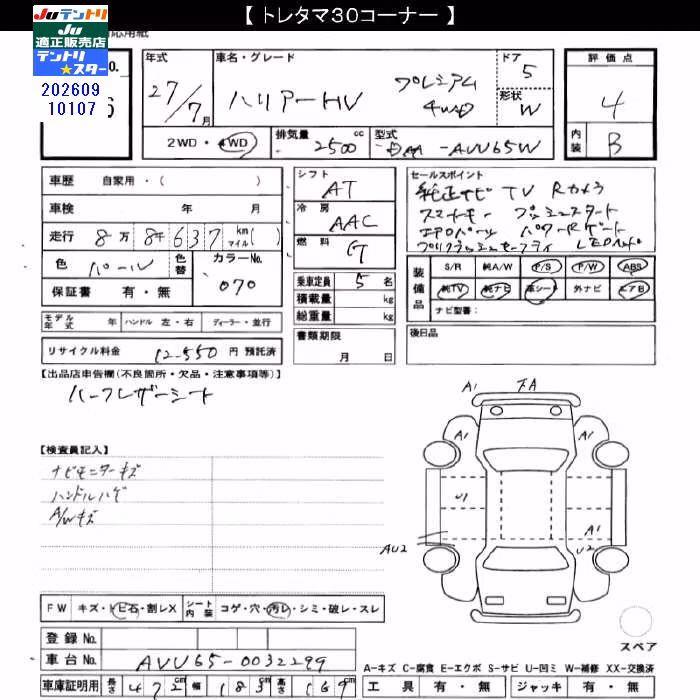 【 トレタマ30コーナー 】
JUテントリ
JU
適正販売店
テントリ
★スター
202609
10107
応用紙
No.
年式
27/7月
車名・グレード
ハリアーHV プレミアム 4WD
ドア
5
形状
W
評価点
4
内装
B
2WD・4WD
排気量 2500 cc
型式 DAA-AVU65W
車歴 自家用・( )
車検 年 月
走行 8万8千637 km マイル( )
色 パール
色替
カラーNo. 070
保証書 有・無
シフト AT
冷房 AAC
燃料 G
乗車定員 5名
積載量 kg
総重量 kg
セールスポイント
純正ナビ TV Rカメラ
スマートキー プッシュスタート
エアロパーツ パワーRゲート
プリクラッシュセーフティ LEDヘッド
装備品
S/R 純A/W P/S P/W ABS
純TV 純ナビ 革シート 外ナビ エアB
ナビ型番:
モデル年式 年 ハンドル 左・右 ディーラー・並行
リサイクル料金 12,550 円 預託済
書類期限
月 日
後日品
【出品店申告欄(不良箇所・欠品・注意事項等)】
ハーフレザーシート
【検査員記入】
ナビモニターキズ
ハンドルハゲ
A/Wキズ
A1
下A
A1
A1
U1
AU2
A1
U2
スペア
FW キズ・トビ石・割レX
シート内装 コゲ・穴・汚レ・シミ・破レ・スレ
登録 No.
車台 No. AVU65-0032299
車庫証明用 長さ 472cm 幅 183cm 高さ 169cm
A-キズ C-腐食 E-エクボ S-サビ U-凹ミ W-補修 XX-交換済
工具 有・無 ジャッキ 有・無